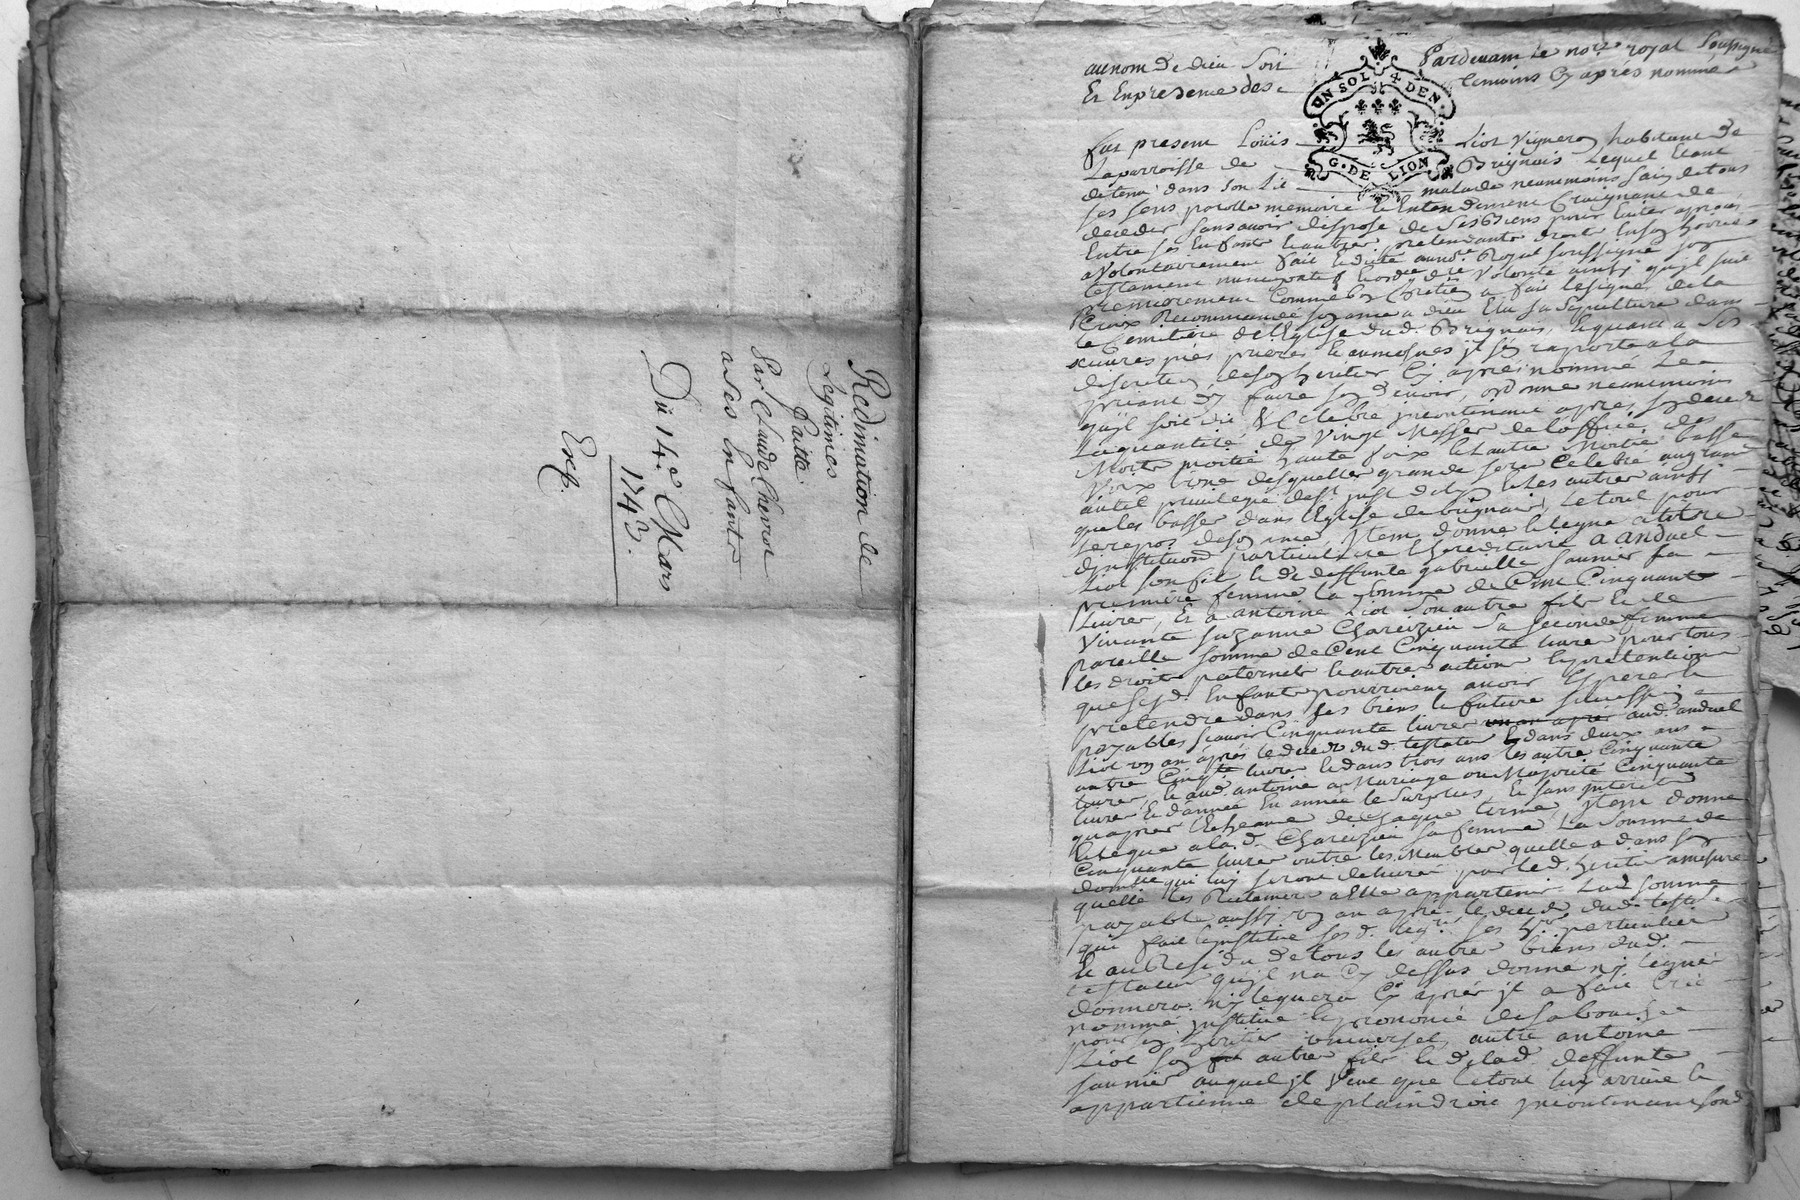 Redimation de
Legitimes
Faitte
Par Claude Chevrot
a Ses Enfants
Du 14e Mars
1743.
Exp.
UN SOL 4 DEN.
G. DE LION
au nom de dieu soit Pardevant le nore royal soussigné
Et En presence des temoins cy aprés nommé
fut present Loüis Liot vigneron habitant de
La parroisse de Brignais Lequel Etant
detenu dans son Lit malade neanmoins sain de tous
ses sens parolle memoire & Entendement Craignant de
deceder sans avoir dispose de ses Biens pour Eviter a procés
Entre ses Enfants & autres pretendants droits En son hoiries
a volontairement fait & dicté au nore Royal soussigné son
testament nuncupatif & ordre de volonté ainsy qu'jl suit
Premierement Comme bon Chretien a fait le signe de la
Croix Recommandé son ame a dieu Elu sa Sepulture dans
le Cemitiere de l'Eglise dud. Brignais, & quant a ses
œuvres pies prieres & aumosnes jl s'en raporte a la
discretion de son heritier cy aprés nommé Le
priant d'en faire son devoir, ordonne neanmoins
qu'jl soit dit & Celebré jncontinant aprés son deces
La quantité de vingt Messes de l'office des
Morts moitié haute voix & l'autre Moitié basse
voix L'une desquelles grande sera Celebré au grand
autel privilegié & les autres ainsi
que les basses dans l'Eglise de brignais, le tout pour
le repos de son ame, Jtem donne & legue a titre
d'jnstitution particuliere & hereditaire a anduel
Liot son fils & de deffunte gabrielle saunier sa
premiere femme la somme de Cent Cinquante
Livres, Et a antoine Liot son autre fils & de
vivante suzanne Chareizieu sa seconde femme
Pareille somme de Cent Cinquante livres pour tous
les droits paternels & autres actions & pretentions
que sesd. Enfants pourroient avoir Esperer &
pretendre dans ses biens & future succession
payables scavoir Cinquante livres un an apres aud. anduel
Liot un an aprés le deces dud. testateur & dans deux ans
autre Cinqte livres & dans trois ans les autre Cinquante
livres, & aud. antoine a Mariage ou Majorité Cinquante
livres & d'année En année le surplus, & sans jnterest
qu'apres l'Echeance de Chaque terme, Jtem donne
& legue a lad. Chareizieu sa femme La somme de
Cinquante livres outre les Meubles quelle a dans son
domicile qui luy seront delivrés par led. heritier a mesure
quelle les Reclamera a Elle appartenir Lad. somme
payable aussy un an aprés le deces dud. testr.
qui fait & jnstitue sesd. legrs. ses hrs. particuliers
Et au Residu de tous les autres biens dud.
testateur qu'jl n'a cy dessus donné ny legué
donnera ny leguera cy aprés jl a fait Crée
nommé jnstitue & prononcé de sa bouche
pour son heritier universel, autre antoine
Liot son autre fils & de lad. deffunte
saunier auquel jl veut que le tout luy arrive &
appartienne de plain droit jncontinant sond.